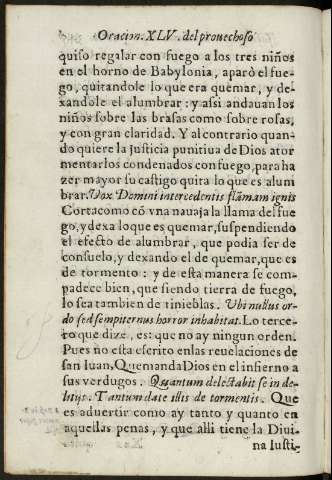 Oracion. XLV. del prouechoso
quiso regalar con fuego a los tres niños
en el horno de Babylonia, aparò el fue-
go, quitandole lo que era quemar, y de-
xandole el alumbrar: y assi andauan los
niños sobre las brasas como sobre rosas,
y con gran claridad. Y al contrario quan-
do quiere la justicia punitiua de Dios ator
mentarlos condenados con fuego, para ha
zer mayor su castigo quita lo que es alum
brar. Vox Domini intercedentis flãmam ignis
Corta como cõ vna nauaja la llama del fue
go, y dexa lo que es quemar, suspendiendo
el efecto de alumbrar, que podia ser de
consuelo, y dexando el de quemar, que es
de tormento: y de esta manera se com-
padece bien, que siendo tierra de fuego,
lo sea tambien de tinieblas. Vbi nullus or-
do sed sempiternus horror inhabitat. Lo terce-
ro que dize, es: que no ay ningun orden.
Pues no esta escrito en las reuelaciones de
san Iuan, Que manda Dios en el infierno a
sus verdugos. Quantum delectabit se in de-
litijs. Tantum date illis de tormentis. Que
es aduertir como ay tanto y quanto en
aquellas penas, y que alli tiene la Diui-
na Iusti-